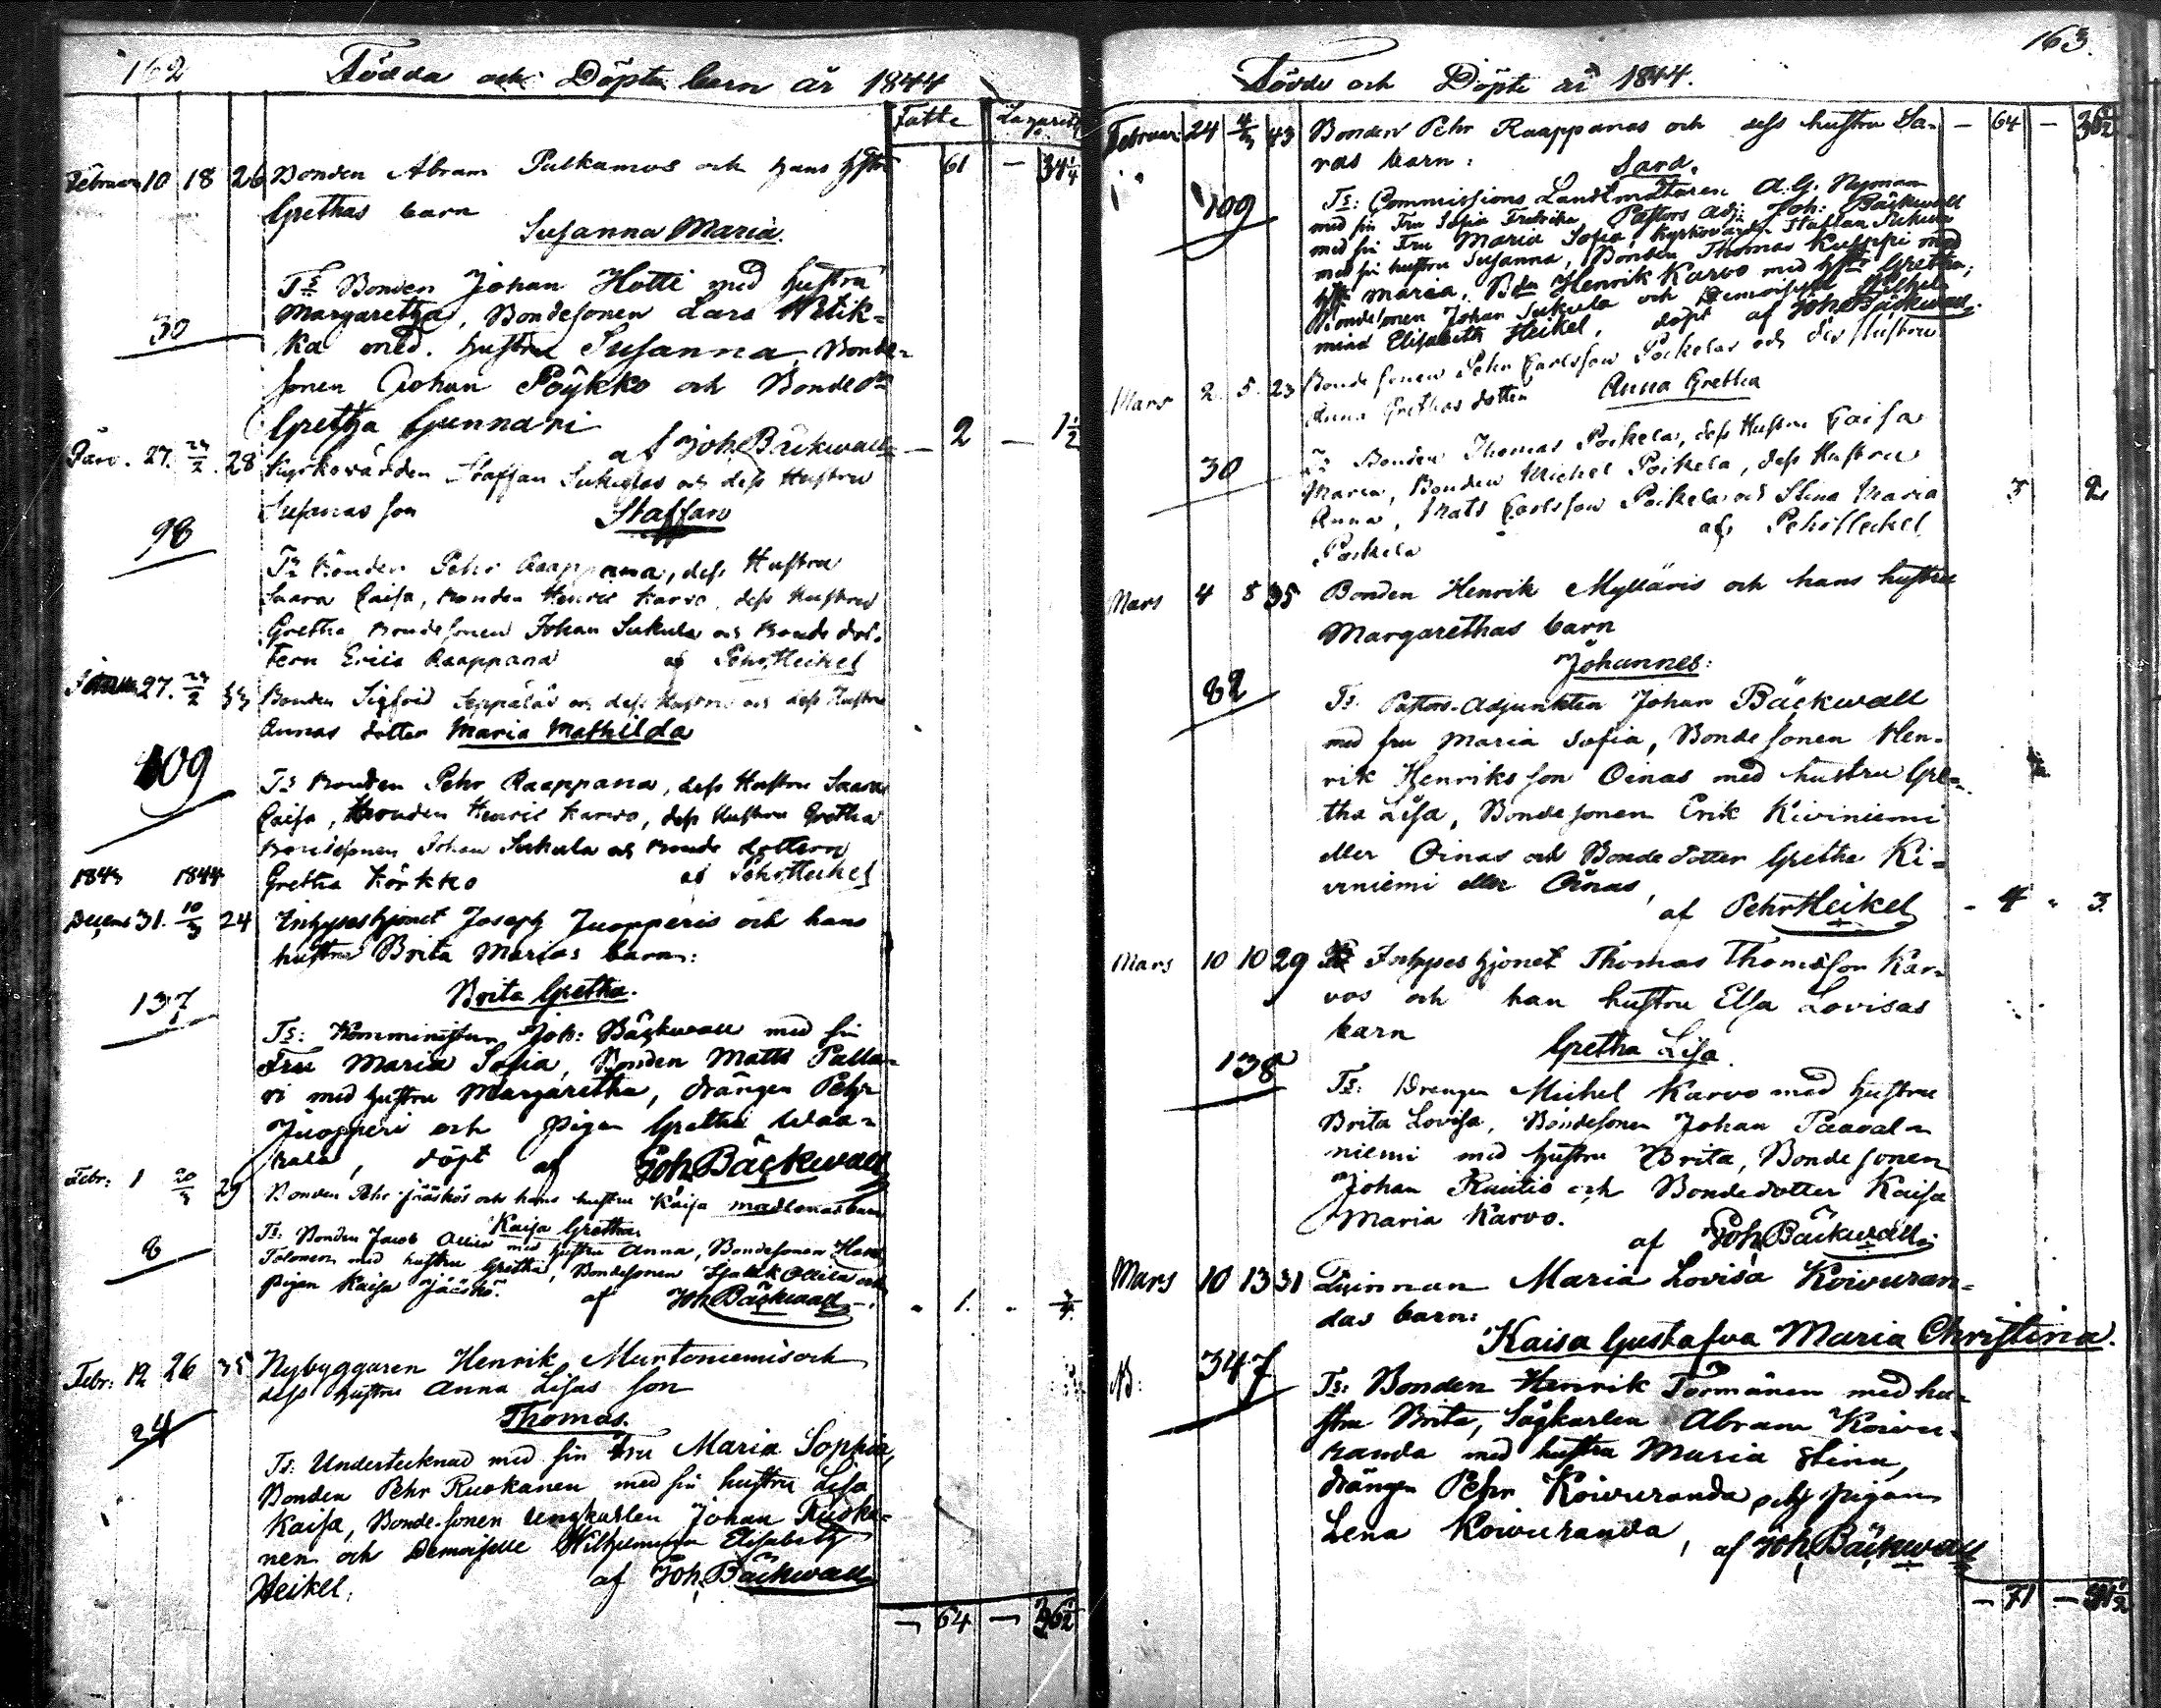 162
Födda och Döpta barn år 1844
Fatte Lazarett
Februari 10 18 26 Bonden Abram Pulkamos och hans hustru 61 — 34 1/4
Grethas barn
Susanna Maria.
Ts Bonden Johan Hotti med hustru
Margaretha, Bondesonen Lars
30
ka med hustru Susanna, Bonde-
sonen Johan Pöykkö och Bonded
Gretha Gunnari
af Joh Bäckwall — 2 — 1 1/2
27. 29/2 28 Kyrkovärden Staffan Sukulas och dess Hustru
Susanas son Staffan
98
Ts Bonden Pehr Raappana, dess Hustru
Saara Caisa, Bonden Henric Karvo, dess Hustru
Gretha, Bondesonen Johan Sukula och Bonde dot-
tern Erica Raappana af Pehr Heikel
27. 29/2 33 Bonden Sigfrid Seppäläs och dess Hustru och dess Hustru
Annas dotter Maria Mathilda
109
Ts Bonden Pehr Raappana, dess Hustru Saara
Caisa, Bonden Henric Karvo, dess Hustru Gretha
Bondesonen Johan Sukula och Bonde dottern
1843 1844 Gretha Körkkö af Pehr Heikel
Decemb 31. 10/3 24 Inhyseshjonet Joseph Juopperis och hans
hustru Brita Marias barn:
Brita Gretha.
137
Ts: Komministern Joh: Bäckwall med sin
Fru Maria Sofia, Bonden Matts Palla-
ri med hustru Margaretha, drängen Pehr
Juopperi och Pigan Gretha Waa-
rala, döpt af Joh Bäckwall
Febr: 1 20/3 29 Bonden Pehr Jääskös och hans hustru Kaisa Madlenas barn
Kaisa Gretha.
Ts: Bonden Jacob Ollila med hustru Anna, Bondesonen Hans
8
Tolonen med hustru Gretha, Bondesonen Isak Ollila och
pigan Kaisa Jääskö. af Joh Bäckwall — 1. 3/4.
Febr: 12 26 35 Nybyggaren Henrik Murtoniemis och
dess hustru Anna Lisas son
Thomas.
24
Ts: Undertecknad med sin Fru Maria Sophia,
Bonden Pehr Ruokanen med sin hustru Lisa
Kaisa, Bonde-sonen ungkarlen Johan Ruoka-
nen och Demoiselle Wilhelmina Elisabeth
Heikel. af Joh. Bäckwall
— 64 — 36 1/2
163.
Födde och Döpte år 1844.
Februari 24 4/3 43 Bonden Pehr Raappanas och dess hustru Sa- — 64 — 36 1/2
ras barn: Sara.
109
Ts: Commissions Landtmätaren A. G. Nyman
med sin Fru Sofia Fredrika, Pastors Adj: Joh: Bäckwall
med sin Fru Maria Sofia, Kyrkovärden Staffan Sukula
med sin hustru Susanna, Bonden Thomas Kulppi med
hstr Maria, Bdn Henrik Karvo med hstr Gretha,
Bondesonen Johan Sukula och Demoiselle Wilhel-
mina Elisabeth Heikel, döpt af Joh Bäckwall.
Mars 2. 5. 23 Bondesonen Pehr Carlsson Poikelas och dess Hustru
Anna Grethas dotter Anna Gretha
30
Ts Bonden Thomas Poikela, dess Hustru Caisa
Maria, Bonden Michel Poikela, dess Hustru
Anna, Mats Carlsson Poikela och Stina Maria 3 2
Poikela af Pehr Heikel
Mars 4 8 35 Bonden Henrik Mylläris och hans hustru
Margarethas barn
Johannes:
82
Ts. Pastors-Adjunkten Johan Bäckwall
med fru Maria Sofia, Bondesonen Hen-
rik Henriksson Oinas med hustru Gre-
tha Lisa, Bondesonen Erik Kiviniemi
eller Oinas och Bondedotter Gretha Ki-
viniemi eller Oinas,
af Pehr Heikel - 4 - 3.
Mars 10 10 29 Inhyses hjonet Thomas Thomasson Kar-
vos och han hustru Elsa Lovisas
barn
Gretha Lisa.
138
Ts: Drengen Michel Karvo med hustru
Brita Lovisa, Bondesonen Johan Paaval-
niemi med hustru Brita, Bondesonen
Johan Rautio och Bondedotter Kaisa
Maria Karvo.
af Joh. Bäckwall.
Mars 10 13 31 Qvinnan Maria Lovisa Koivuran-
das barn:
Kaisa Gustafva Maria Christina.
347
Ts: Bonden Henrik Törmänen med hu-
stru Brita, Sågkarlen Abram Koivu-
randa med hustru Maria Stina,
drängen Pehr Koivuranda och pigan
Lena Koivuranda, af Joh. Bäckwall
— 71 — 41 1/2